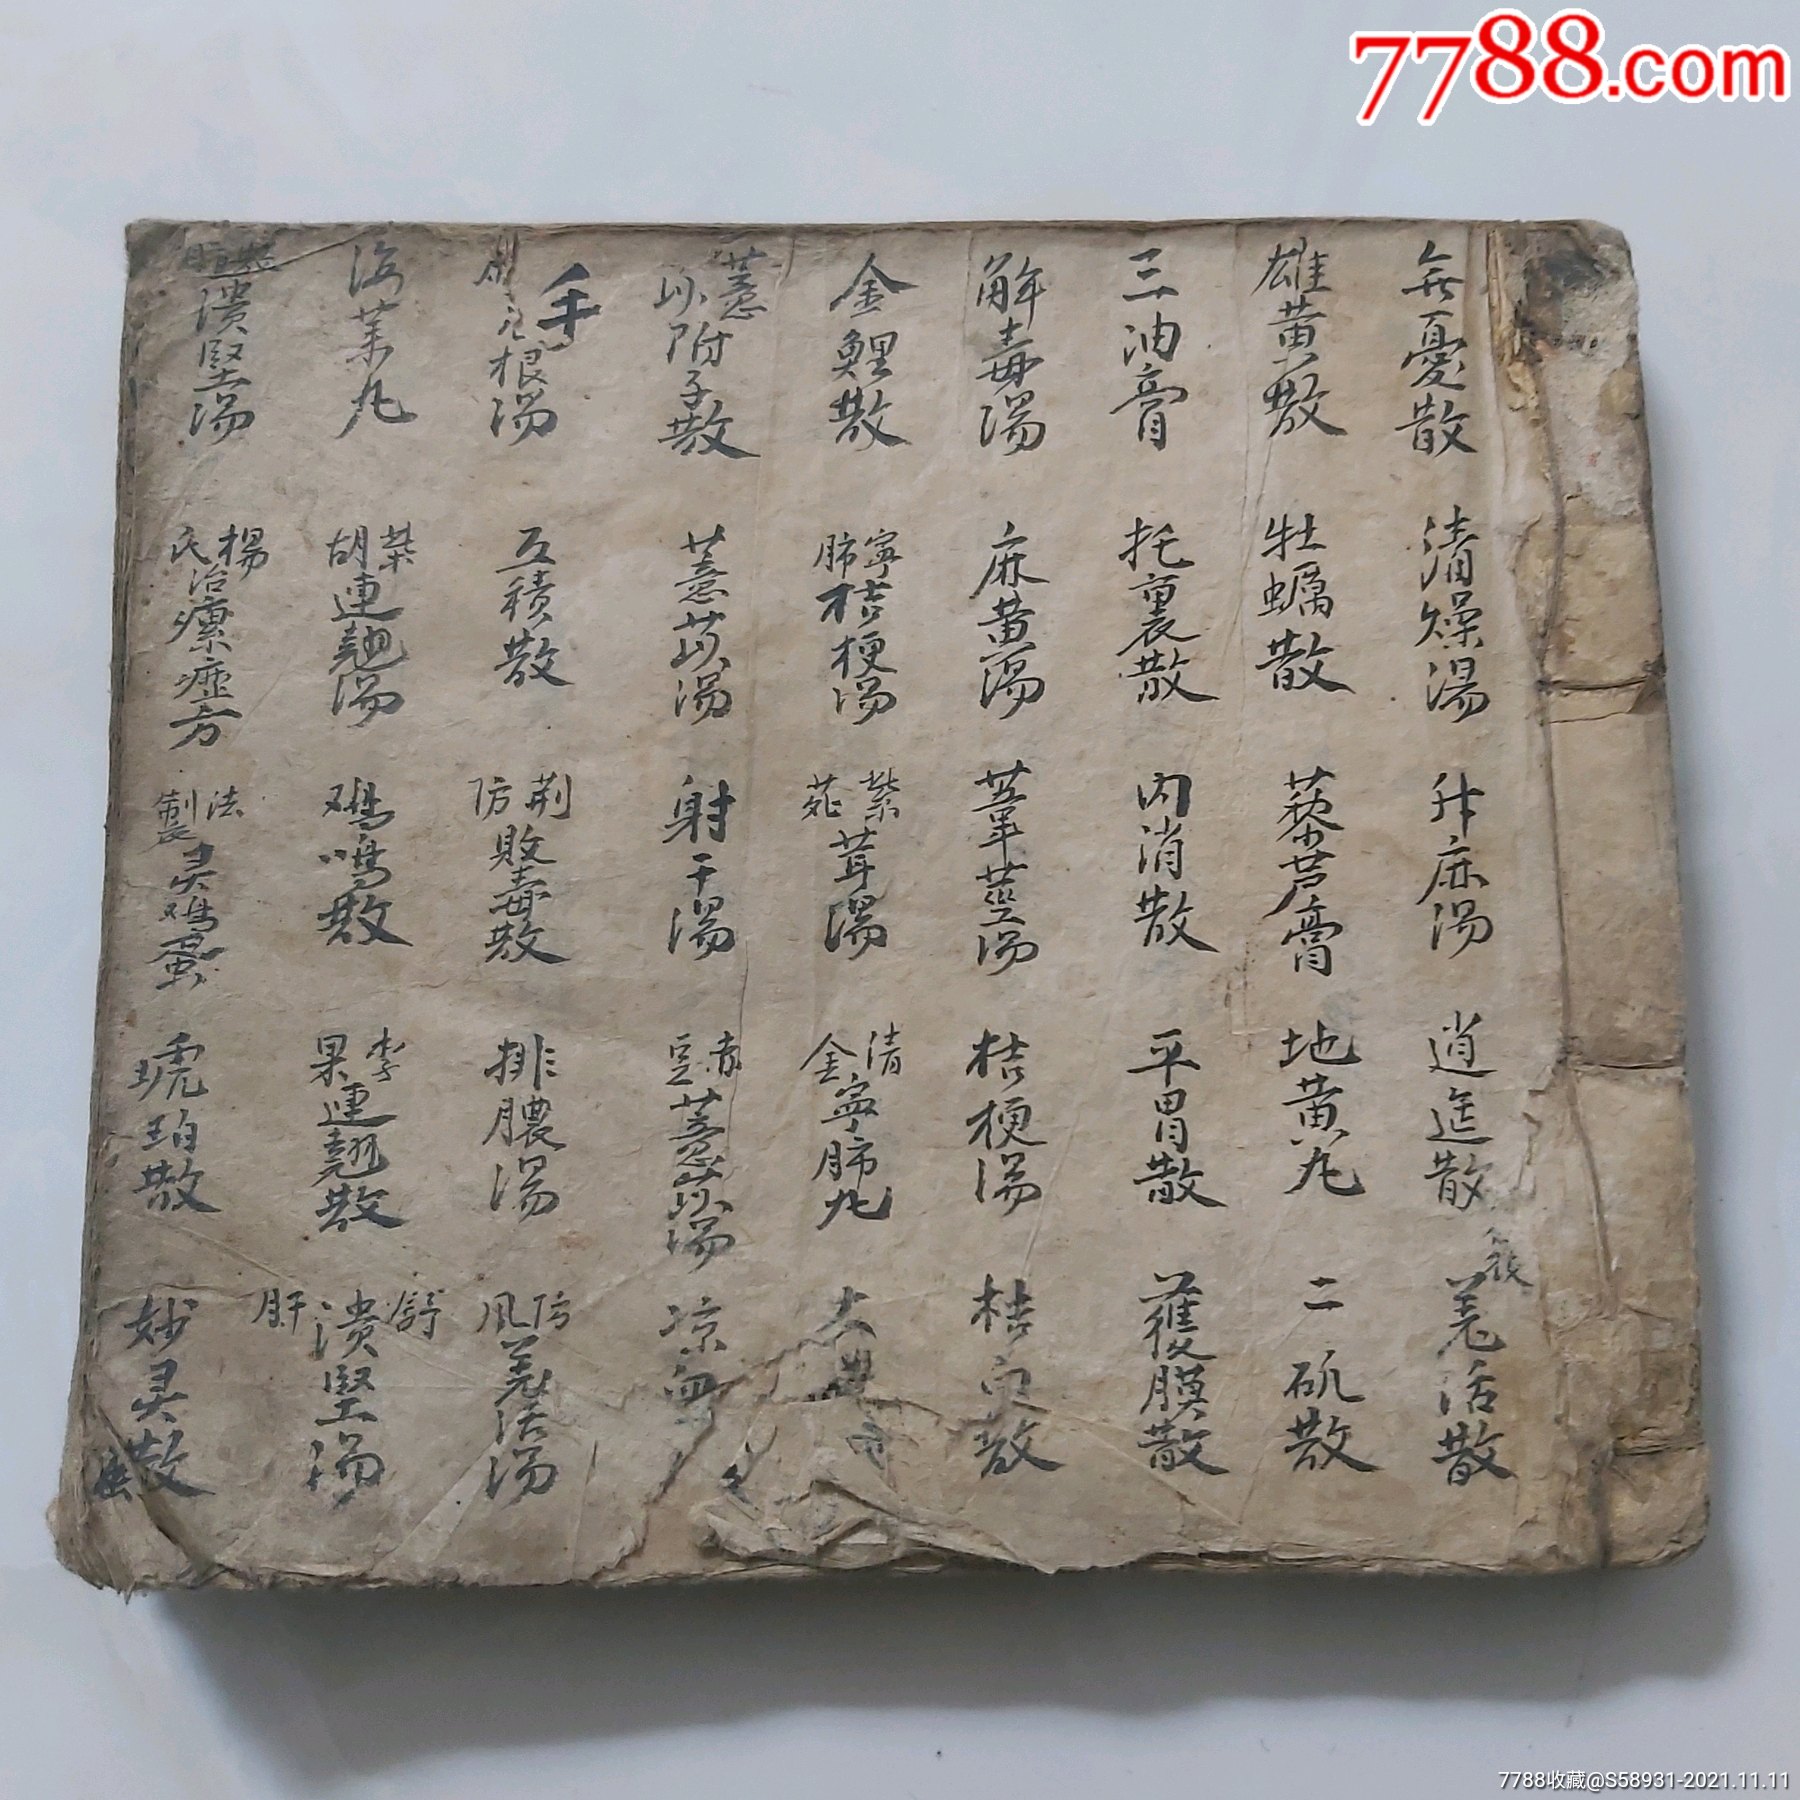 7788.com
無憂散 清燥湯 升麻湯 逍遥散 羌活散
雄黄散 牡蠣散 藜芦膏 地黄丸 二矾散
三油膏 托裏散 内消散 平胃散 護膜散
解毒湯 麻黄湯 葦莖湯 桔梗湯 桔白散
金鯉散 寧肺桔梗湯 紫菀茸湯 清金寧肺丸
薏苡附子散 薏苡湯 射干湯 赤豆薏苡湯 凉血
手 根湯 五積散 荆防敗毒散 排膿湯 防風羌活湯
海菜丸 柴胡連翹湯 鸡鳴散 李杲連翹散 舒肝潰堅湯
潰堅湯 楊氏治瘰癧方 法製灵鸡蛋 琥珀散 妙灵散
7788收藏@S58931-2021.11.11